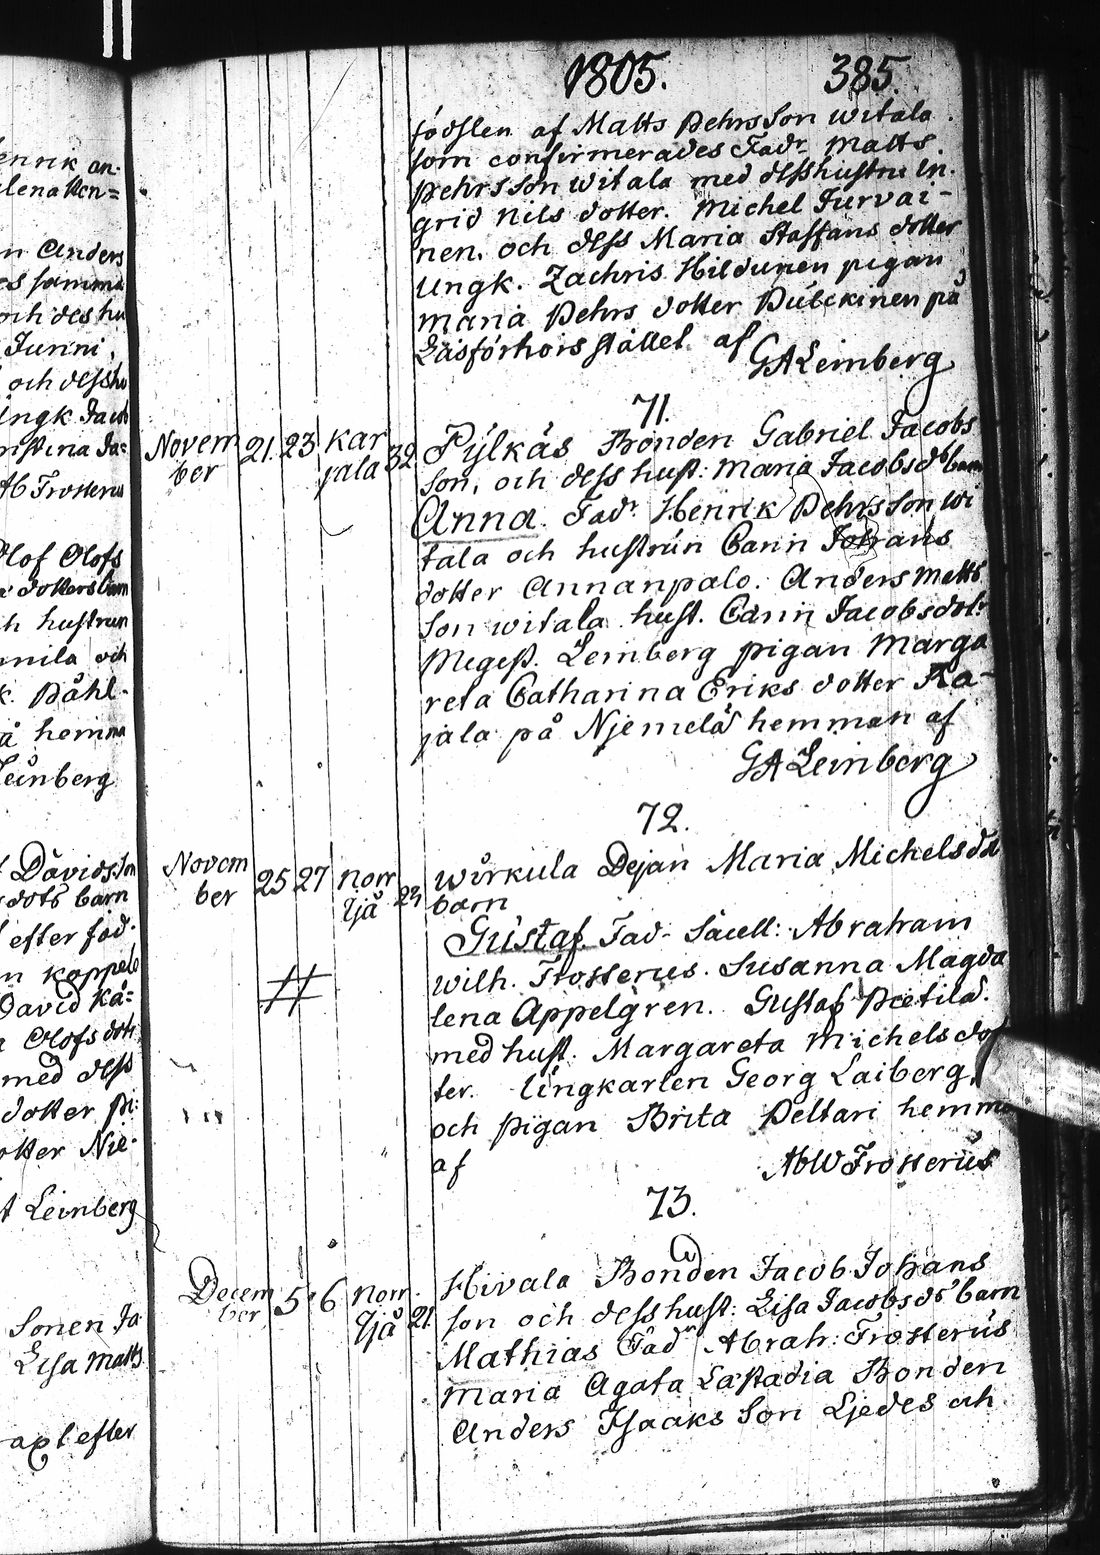 1805. 385.
födslen af Matts Pehrsson witala
som confirmerades Fadr. Matts
Pehrsson witala med dess hustru in-
grid Nils dotter. Michel Turvai-
nen. och dess Maria Staffans dotter
ungk. Zachris Hildunen pigan
maria Pehrs dotter på
Läsförhörs stället af
GALeinberg
71.
Novem 21. 23 Kar 32 Pylkäs Bonden Gabriel Jacobs
ber jala son, och dess hust: Maria Jacobsdr barn
Anna. Fadr. Henrik Pehrsson wi
tala och hustrun Carin Johans
dotter Annanpalo. Anders Matts
son witala hust. Carin Jacobsdotr
Leinberg pigan Marga
reta Catharina Eriks dotter Ka-
jala på Njemelä hemman af
GALeinberg
72.
Novem 25 27 norr wirkula Dejan Maria Michelsdr
ber ljå barn
Gustaf Fad. Sacell: Abraham
wilh. Frosterus. Susanna Magda
lena Appelgren. Gustaf Pietilä.
med hust. Margareta Michelsdot
ter. Ungkarlen Georg Laiberg,
och pigan Brita Peltari hemma
af AbWFrosterus
73.
Decem 5 6 norr 21. Hivala Bonden Jacob Johans
ber ljå son och dess hust: Lisa Jacobsdr barn
Mathias Fad Abrah: Frosterus
Maria Agata Lastadia Bonden
Anders Isaaks son Ljedes och
enrik an-
lena Hen=
n Anders
es samma
och des hu
Junni,
och dess hu
ingk Jacob
nstina Ja=
Ab Frosterus
Olof Olofs
dotters barn
h hustrun
mila och
k. Påhl-
å hemma
Leinberg
Davidsson
sdotr barn
efter föd-
n kappels
David Kä=
a Olofs dotr
med dess
dotter pi-
otter Nie-
t Leinberg
Sonen Ja
Lisa Matts
axl efter